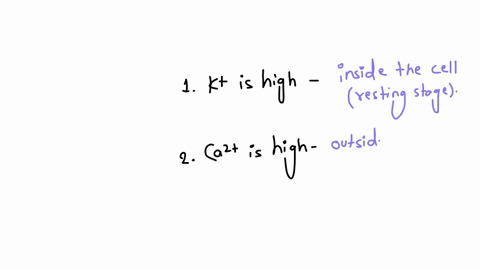 1. K+ is high - inside the cell
(resting stage).
2. Ca2+ is high - outsid.